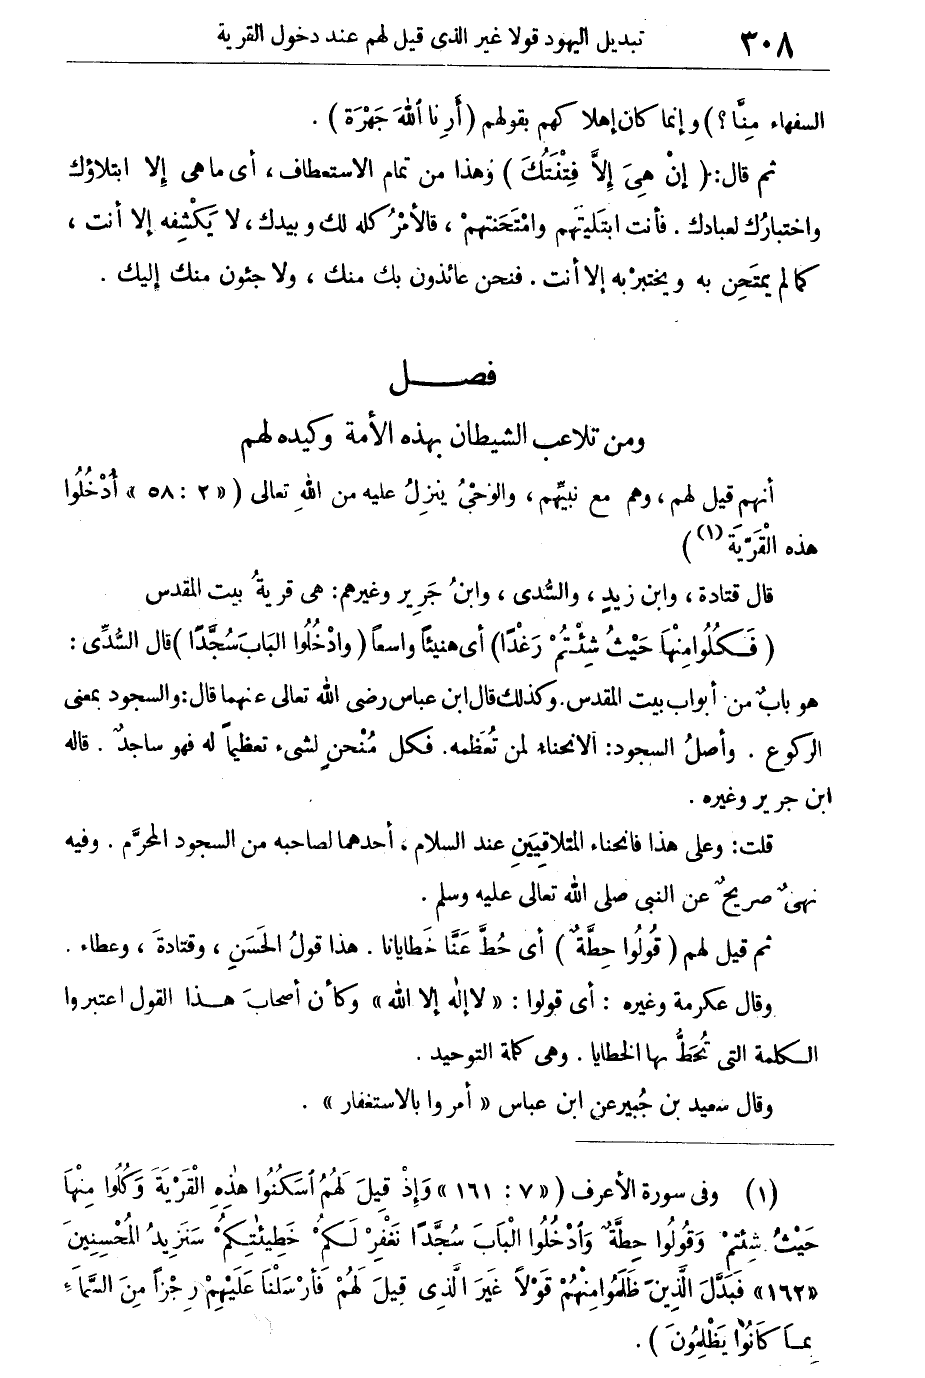 ٣٠٨ تبديل اليهود قولا غير الذى قيل لهم عند دخول القرية
السفهاء مِنَّا؟) وإنما كان إهلاكهم بقولهم (أَرِنا اللهَ جَهْرَة) .
ثم قال: ( إنْ هِىَ إِلاَّ فِتْنَتُكَ ) وُهذا من تمام الاستعطاف، أى ما هى إلا ابتلاؤك
واختبارُك لعبادك . فأنت ابتَليتَهم وامْتَحَنتهمْ ، فالأمْرُ كله لك وبيدك، لا يَكْشِفه إلا أنت ،
كما لم يمتَحِن به ويختبرْ به إلا أنت . فنحن عائذون بك منك ، ولاجئون منك إليك .
فصــــل
ومن تلاعب الشيطان بهذه الأمة وكيده لهم
أنهم قيل لهم، وهم مع نبيِّهم، والوَحْىُ ينزلُ عليه من اللهِ تعالى ( « ٢ : ٥٨ » أُدْخُلُوا
هذه الْقَرْيَة (١) )
قال قتادة ، وابن زيدٍ ، والسُّدى ، وابنُ جَرِير وغيرهم: هى قريةُ بيت المقدس
( فَكُلُوا مِنْهَا حَيْثُ شِئْتُمْ رَغْدًا) أى هنيئاً واسعاً ( وادْخُلُوا البَابَ سُجَّدًا )قال السُّدِّى :
هو بابٌ من أبواب بيت المقدس. وكذلك قال ابن عباس رضى الله تعالى عنهما قال: والسجود بمعنى
الركوع . وأصلُ السجود: الانحناء لمن تُعَظمه. فكل مُنْحنٍ لشىء تعظيماً له فهو ساجدٌ . قاله
ابن جرير وغيره .
قلت: وعلى هذا فانحناء المتلاقِيَينِ عند السلام ، أحدهما لصاحبه من السجود المحرَّم . وفيه
نهىٌ صريحٌ عن النبى صلى الله تعالى عليه وسلم .
ثم قيل لهم ( قُولُوا حِطَّةٌ ) أى حُطَّ عَنَّا خَطايانا . هذا قولُ الحَسَنِ ، وقتادةَ ، وعطاء .
وقال عكرمة وغيره : أى قولوا : « لا إلٰه إلا الله » وكأن أصحابَ هــذا القول اعتبروا
الكلمة التى تُحَطُّ بها الخطايا . وهى كلمة التوحيد .
وقال سعيد بن جُبير عن ابن عباس « أمروا بالاستغفار » .
(١) وفى سورة الأعرف ( « ٧ : ١٦١ » وَإِذْ قِيلَ لَهُمُ اسَكُنُوا هٰذِهِ الْقَرْيَةَ وَكُلُوا مِنْهَا
حَيْثُ شِئتمْ وَقُولُوا حِطَّةٌ وَادْخُلُوا الْبَابَ سُجَّدًا نَغْفِرْ لَكمُ خَطِيئٰتِكمُ سَنَزِيدُ المُحْسِنِينَ
«١٦٢» فَبَدَّلَ الَّذِينَ ظَلَمُوا مِنْهُمْ قَوْلاً غَيرَ الَّذِى قِيلَ لَهُمْ فَأَرْسَلْنَا عَلَيْهِمْ رِجْزاً مِنَ السَّمَاءِ
بِمـَا كَانُوا يَظْلِمُونَ ) .